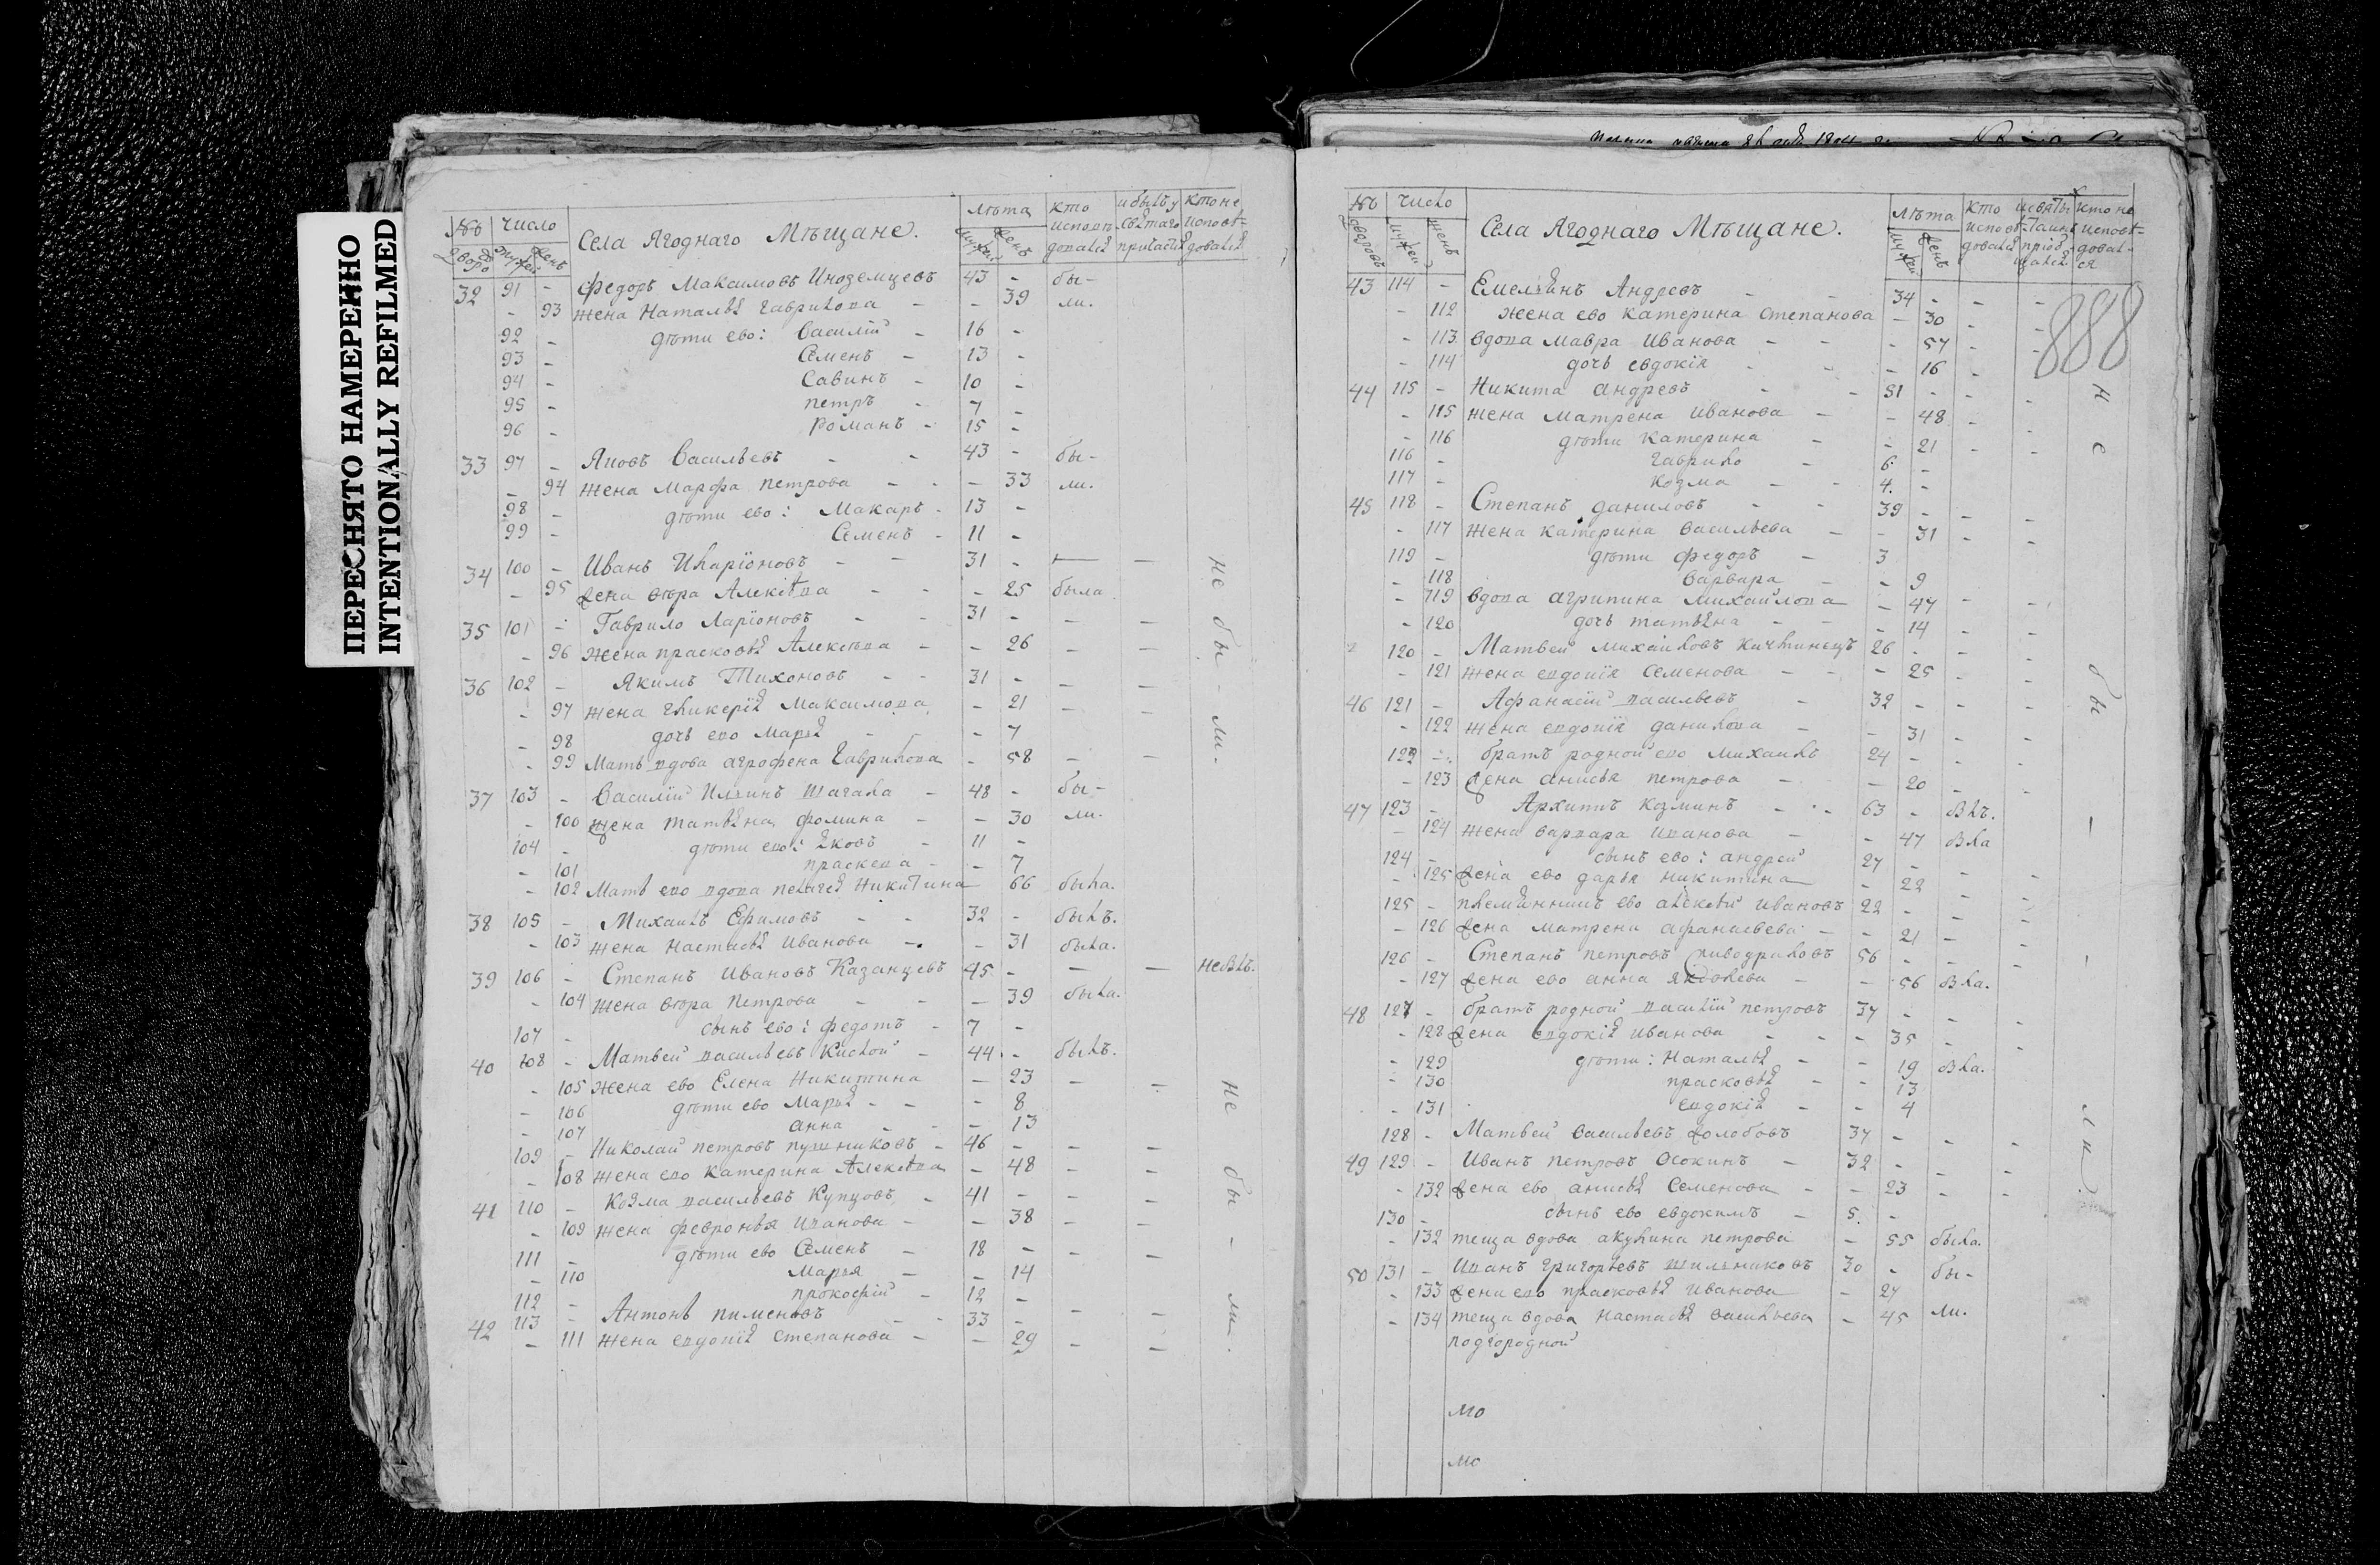 ПЕРЕСНЯТО НАМЕРЕННО
INTENTIONALLY REFILMED
№ Число Села Ягоднаго Мѣщане. лѣта кто исповѣдовался и былъ у святаго причастія кто не исповѣдовался
дворо мужей женъ мужей женъ
32 91 - Федоръ Максимовъ Иноземцевъ 43 - бы-
- 93 жена Наталья Гаврилова - - 39 ли.
92 - дѣти ево: Василій - 16 -
93 - Семенъ - 13 -
94 - Савинъ - 10 -
95 - петръ - 7 -
96 - Романъ - 15 -
33 97 - Яковъ Васильевъ - - 43 - бы-
- 94 жена Марфа петрова - - - 33 ли.
98 - дѣти ево: Макаръ - 13 -
99 - Семенъ - 11 -
34 100 - Иванъ Иларіоновъ - - 31 - - -
- 95 жена Ѳтра Алексѣва - - - 25 была
35 101 - Гаврило Ларіоновъ - - 31 - - -
- 96 жена прасковья Алексѣева - - 26 - -
36 102 - Якимъ Тихоновъ - - 31 - - -
- 97 жена гликерія Максимова - 21 - -
- 98 дочь ево Марья - - 7
- 99 Мать вдова агрофена Гаврилова - 58 - -
37 103 - Василій Ильинъ Шагала - 48 - бы-
- 100 жена татьяна фомина - - 30 ли.
104 - дѣти ево: яковъ - 11 -
- 101 праскева - - 7
- 102 Мать ево вдова пелагея Никитина 66 была.
38 105 - Михаилъ Ефимовъ - - 32 - былъ.
- 103 жена настасья иванова - - 31 была.
39 106 - Степанъ Ивановъ Казанцевъ 45 - - - не блъ.
- 104 жена Ѳтра петрова - - - 39 была.
107 - сынъ ево: федотъ - 7 -
40 108 - Матвей васильевъ Кислой - 44 - былъ.
- 105 жена ево Елена Никитина - 23 - -
- 106 дѣти ево Марья - - - 8
- 107 анна - - - 13
109 - Николай петровъ пушниковъ - 46 - - -
- 108 жена ево катерина Алексѣва - 48 - -
41 110 - Козма васильевъ Купцовъ - 41 - - -
- 109 жена февронья иванова - - 38 - -
111 - дѣти ево Семенъ - 18 - - -
- 110 Марья - - 14
112 - прокофій - 12 -
42 113 - Антонъ пименовъ - - 33 - - -
- 111 жена евдокія степанова - - 29 - -
не бы - ли.
не бы - ли.
№ Число Села Ягоднаго Мѣщане. лѣта кто исповѣдовался и святыхъ таинъ пріобщался кто не исповѣдовался
дворовъ мужей женъ мужей женъ
888
43 114 - Емельянъ Андревъ - - 34 - - -
- 112 жена ево катерина степанова - 30 - -
- 113 вдова мавра иванова - - - 57 - -
- 114 дочь евдокія - - - 16 -
44 115 - Никита андревъ - - 51 - - -
- 115 жена матрена иванова - - 48 - -
- 116 дѣти катерина - - 21 - -
116 - гаврило - 6 -
117 - козма - - 4 -
45 118 - Степанъ даниловъ - - 39 - - -
- 117 жена катерина васильева - - 31 - -
119 - дѣти федоръ - 3
- 118 варвара - - 9
- 119 вдова агрипина михайлова - 47 - -
- 120 дочь татьяна - - - 14 - -
120 - Матвей михаиловъ Качтинецъ 26 - - -
- 121 жена евдокія семенова - - - 25 - -
46 121 - Афанасій васильевъ - 32 - - -
- 122 жена евдокія данилова - - 31 - -
122 - братъ родной ево михаилъ 24 - - -
- 123 жена анисья петрова - - 20 - -
47 123 - Архипъ козминъ - - 63 - блъ.
- 124 жена варвара иванова - - 47 бла
124 - сынъ ево: андрей 27 - - -
- 125 жена ево дарья никитина - 22 - -
125 - племянникъ ево алексей ивановъ 22 - - -
- 126 жена матрена афанасьева - - 21 - -
126 - Степанъ петровъ 56 - - -
- 127 жена ево анна яковлева - - 56 бла.
48 127 - братъ родной василій петровъ 37 - - -
- 128 жена евдокія иванова - - - 35 - -
- 129 дѣти: наталья - - 19 бла.
- 130 прасковья - - 13
- 131 евдокія - - 4
128 - Матвей васильевъ долобовъ 37 - - -
49 129 - Иванъ петровъ Осокинъ - 32 - - -
- 132 жена ево анисья семенова - - 23 - -
130 - сынъ ево евдокимъ - 5 -
- 132 теща вдова акулина петрова - 55 была.
50 131 - Иванъ григорьевъ шильниковъ 30 - бы-
- 133 жена ево прасковья иванова - 27
- 134 теща вдова настасья васильева - 45 ли.
подгородной
не бы - - ли.
мо
мо